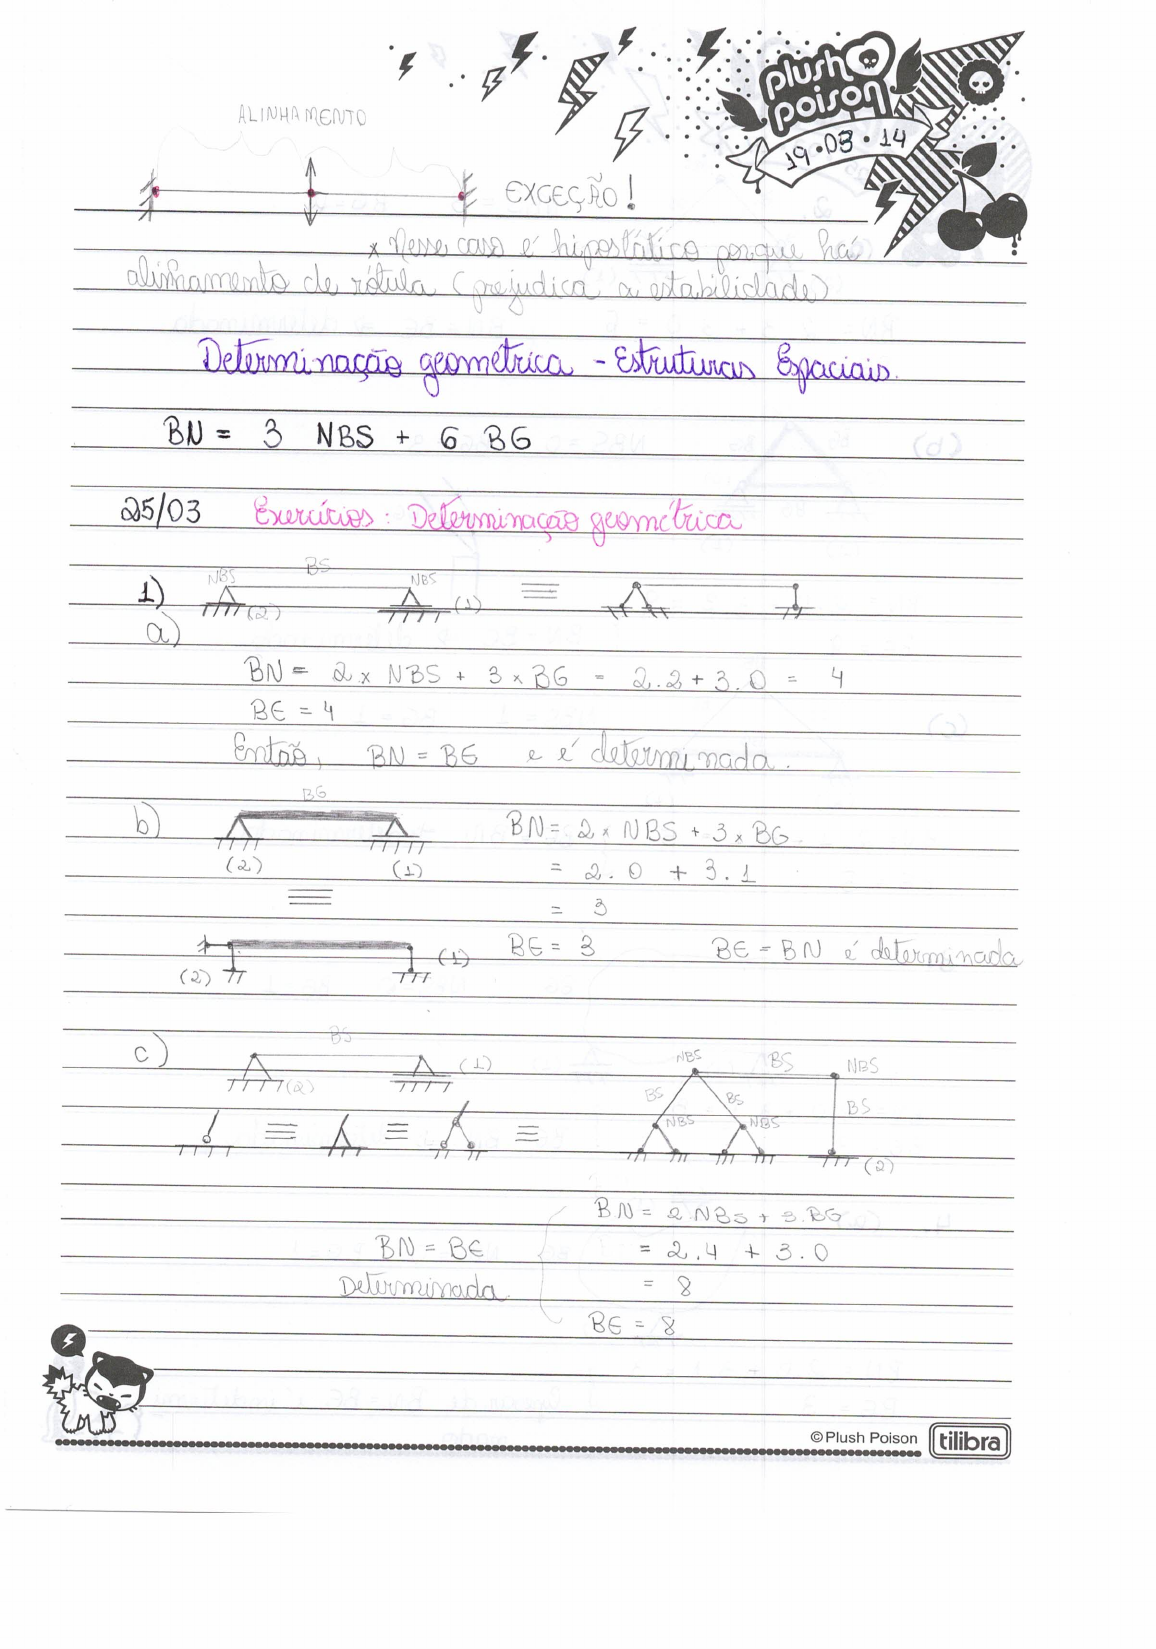 plush
poison
19·03·14
ALINHAMENTO
EXCEÇÃO!
* Nesse caso é hipostático porque há
alinhamento de rótula (prejudica a estabilidade)
Determinação geométrica - Estruturas Espaciais.
BN = 3 NBS + 6 BG
25/03 Exercícios: Determinação geométrica
1)
NBS BS NBS
(2) (1) ≡
a)
BN = 2 x NBS + 3 x BG = 2.2 + 3.0 = 4
BE = 4
Então, BN = BE e é determinada.
b) BG
BN = 2 x NBS + 3 x BG
(2) (1)
= 2.0 + 3.1
≡
= 3
(2) (1)
BE = 3 BE = BN é determinada
c) BS
(2) (1)
≡ ≡ ≡
NBS BS NBS
BS BS BS
NBS NBS
(2)
BN = 2.NBS + 3.BG
BN = BE = 2.4 + 3.0
Determinada. = 8
BE = 8
©Plush Poison tilibra